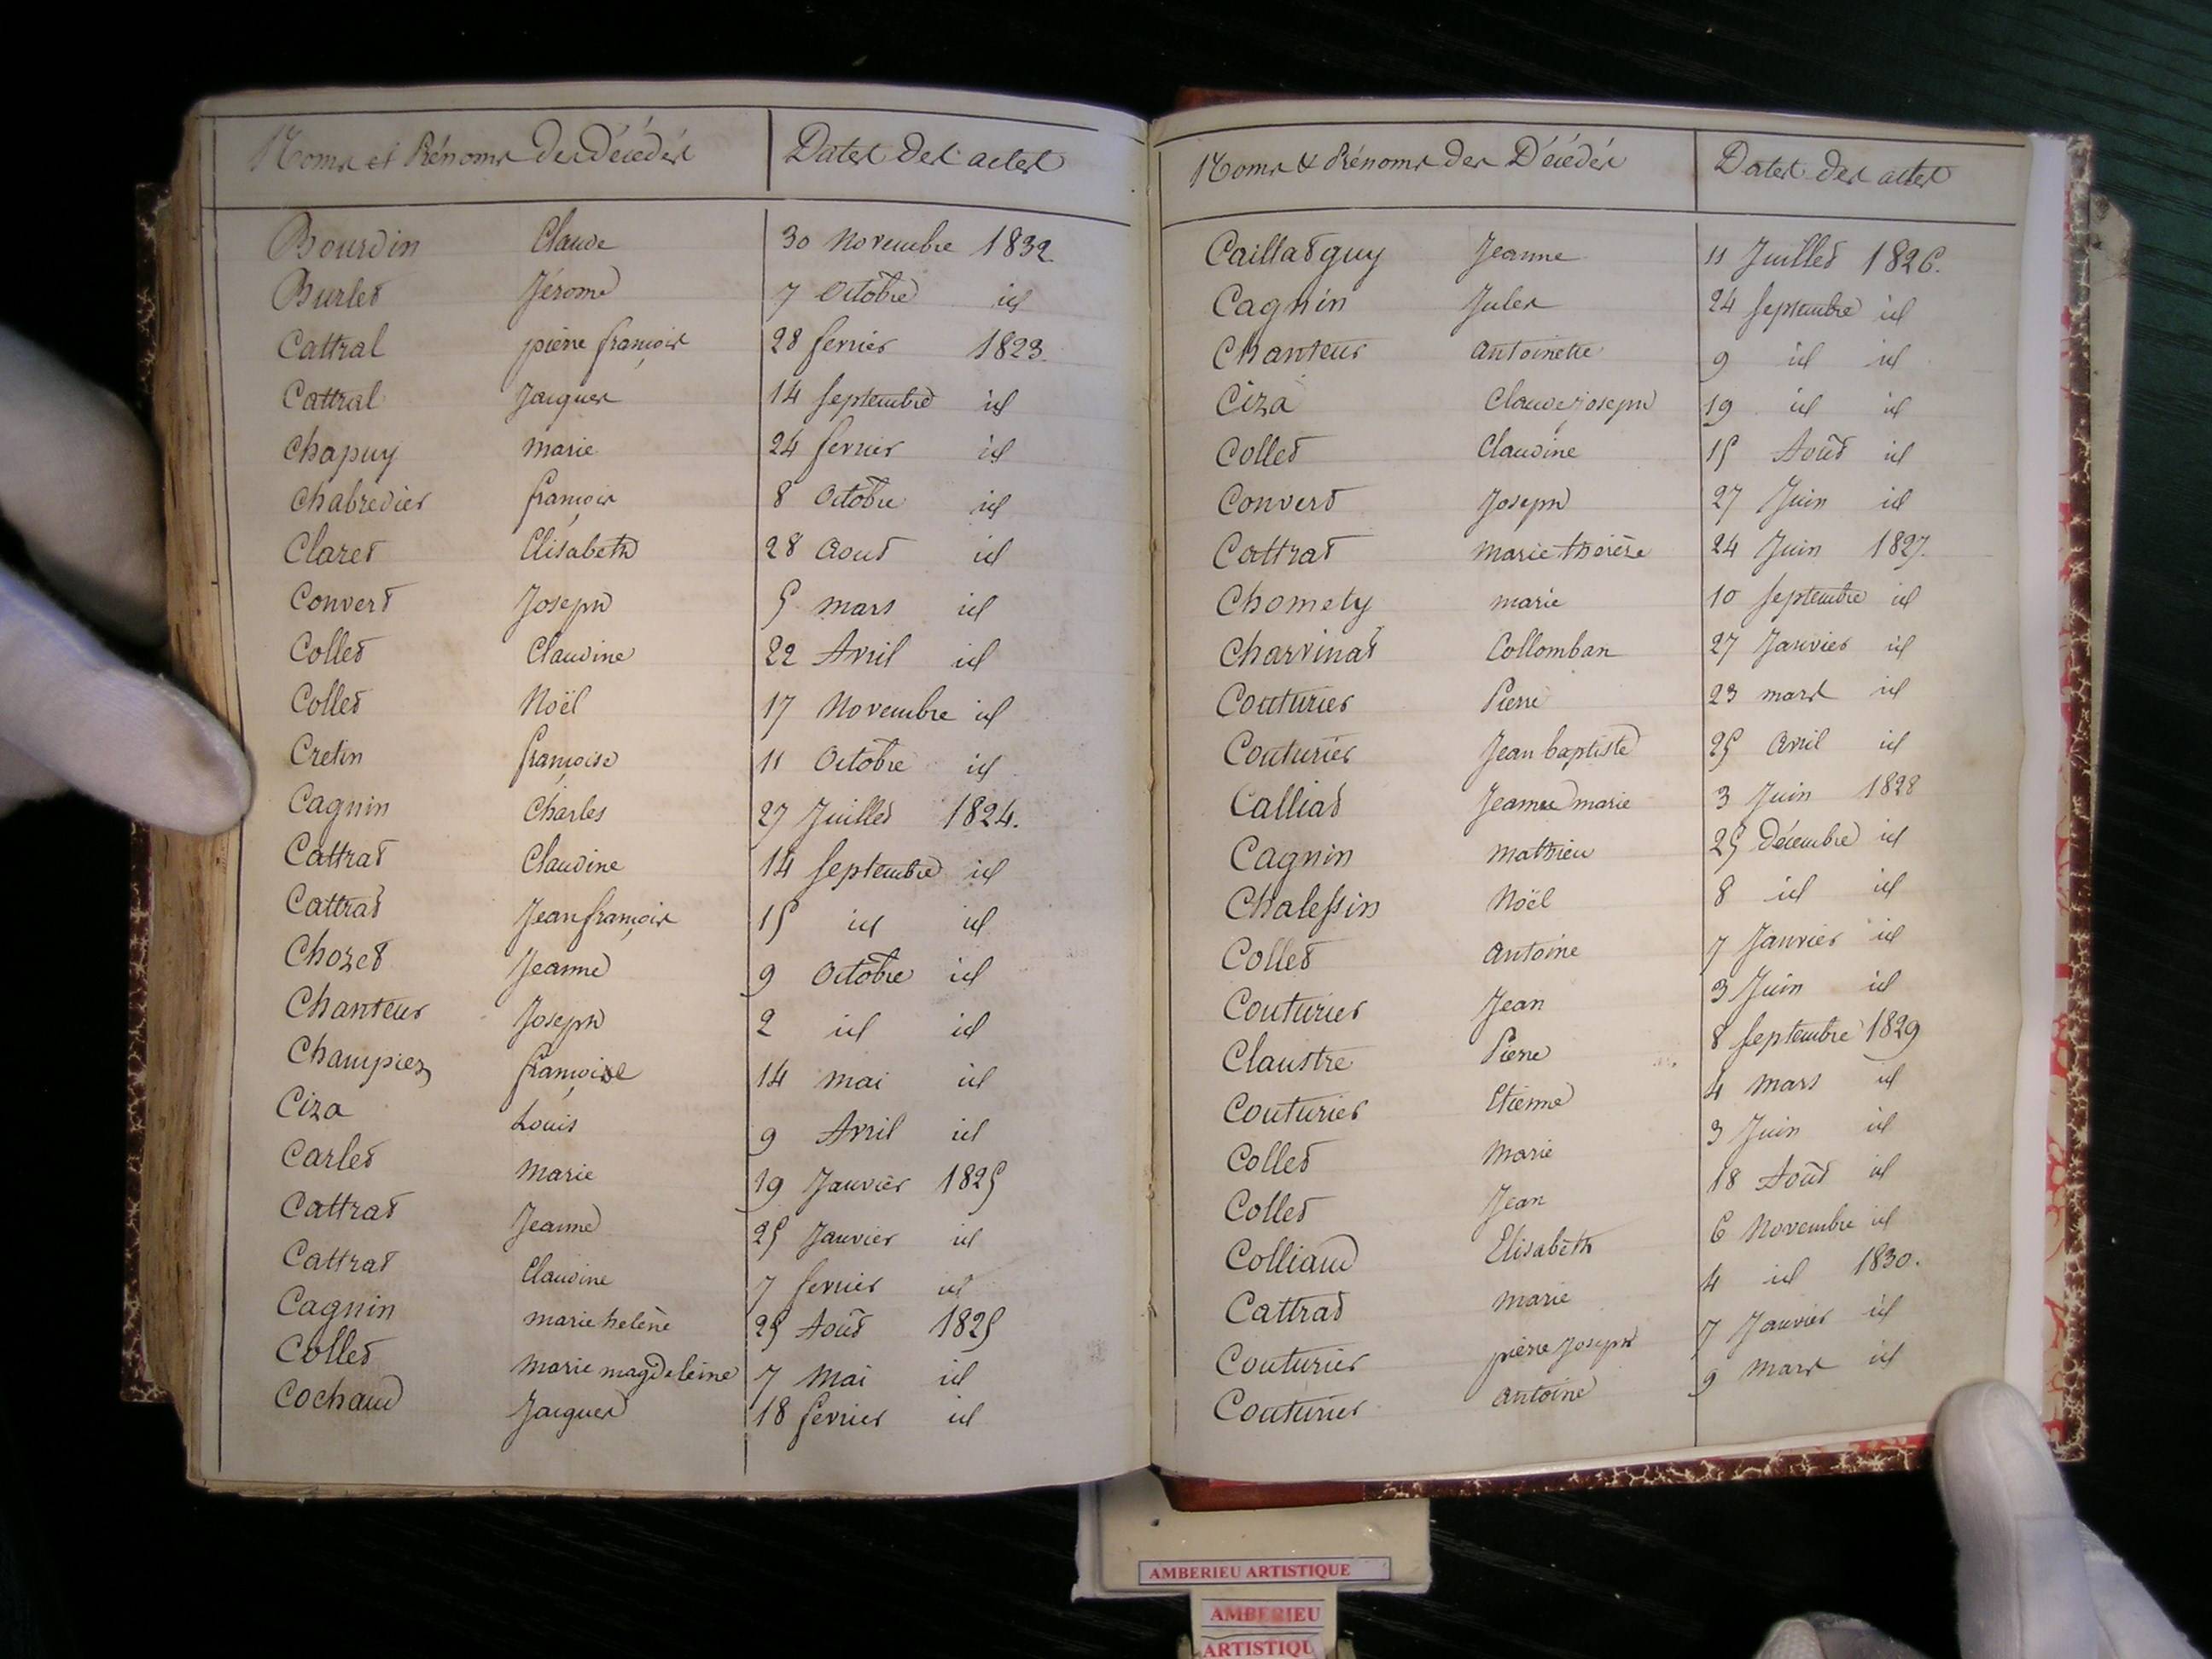 Noms et Prénoms des Décédés Dates des actes
Bourdin Claude 30 Novembre 1832.
Burlet Jérome 7 Octobre id
Cattral pierre françois 28 fevrier 1823.
Cattral Jacques 14 septembre id
Chapuy marie 24 fevrier id
Chabredier françois 8 Octobre id
Claret Elisabeth 28 Aout id
Convert Joseph 5 mars id
Collet Claudine 22 Avril id
Collet Noël 17 Novembre id
Cretin françoise 11 Octobre id
Cagnin Charles 27 Juillet 1824.
Cattrat Claudine 14 septembre id
Cattrat Jean françois 15 id id
Chozet Jeanne 9 Octobre id
Chanteur Joseph 2 id id
Champier françoise 14 mai id
Ciza Louis 9 Avril id
Carlet Marie 19 Janvier 1825
Cattrat Jeanne 25 Janvier id
Cattrat Claudine 7 fevrier id
Cagnin marie helène 25 Août 1825
Collet marie magdeleine 7 Mai id
Cochaud Jacques 18 fevrier id
Noms & Prénoms des Décédés Dates des actes
Caillatguy Jeanne 11 Juillet 1826.
Cagnin Jules 24 septembre id
Chanteur Antoinette 9 id id
Ciza Claude joseph 19 id id
Collet Claudine 15 Août id
Convert Joseph 27 Juin id
Cattrat marie thérèse 24 Juin 1827.
Chomety marie 10 septembre id
Charvinat Collomban 27 Janvier id
Couturier Pierre 23 mars id
Couturier Jean baptiste 25 Avril id
Calliat Jeanne marie 3 Juin 1828
Cagnin Mathieu 25 Décembre id
Chalessin Noël 8 id id
Collet Antoine 7 Janvier id
Couturier Jean 3 Juin id
Claustre Pierre 8 septembre 1829
Couturier Etienne 4 mars id
Collet Marie 3 Juin id
Collet Jean 18 Août id
Colliaud Elisabeth 6 Novembre id
Cattrat marie 4 id 1830.
Couturier pierre Joseph 7 Janvier id
Couturier Antoine 9 Mars id
AMBERIEU ARTISTIQUE
AMBERIEU
ARTISTIQU